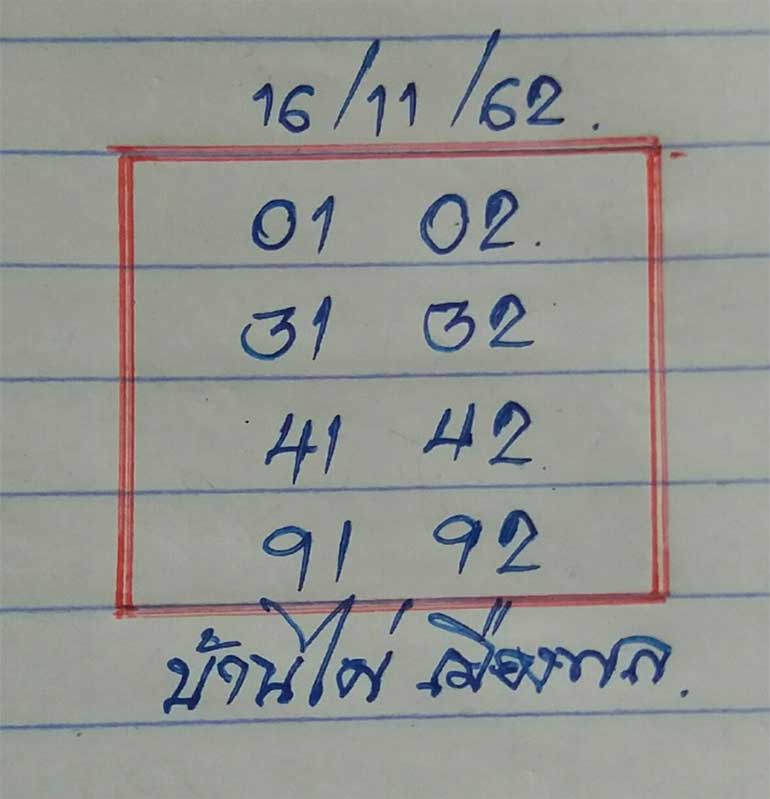 16/11/62.
01 02.
31 32
41 42.
91 92
บ้านไผ่ เมืองพล.